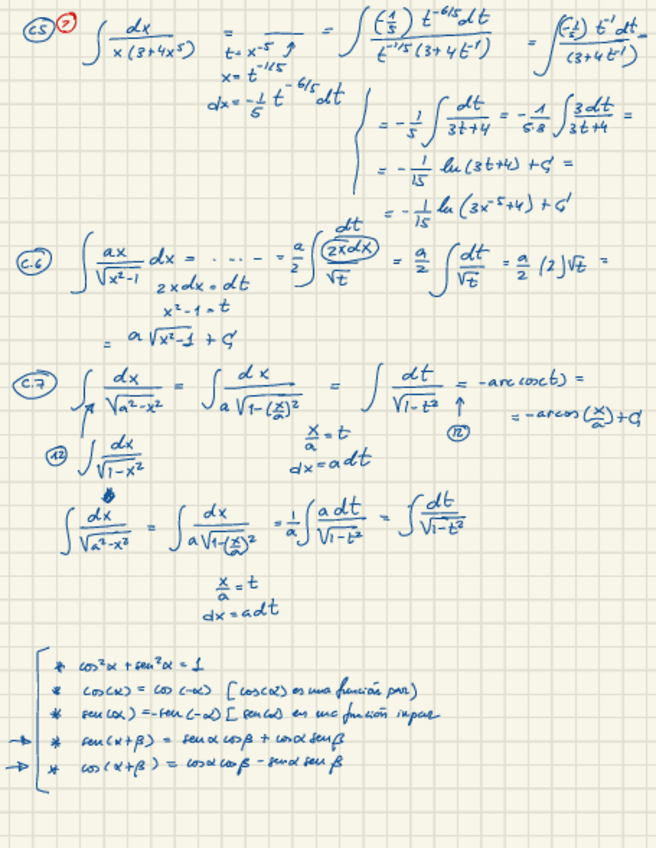 C.5 ? ∫ dx / x(3+4x⁵) = = ∫ (-1/5) t^(-6/5) dt / t^(-1/5) (3+4t⁻¹) = ∫ (-1/5) t⁻¹ dt / (3+4t⁻¹) =
t = x⁻⁵
x = t^(-1/5)
dx = -1/5 t^(-6/5) dt
= -1/5 ∫ dt / 3t+4 = -1/5·3 ∫ 3dt / 3t+4 =
= -1/15 ln(3t+4) + C =
= -1/15 ln(3x⁻⁵+4) + C
C.6 ∫ ax / √(x²-1) dx = ..... = a/2 ∫ 2xdx / √t = a/2 ∫ dt / √t = a/2 (2)√t =
dt
2xdx = dt
x²-1 = t
= a√(x²-1) + C
C.7 ∫ dx / √(a²-x²) = ∫ dx / a√(1-(x/a)²) = ∫ dt / √(1-t²) = -arccos(t) =
= -arcos(x/a) + C
12
x/a = t
dx = a dt
12 ∫ dx / √(1-x²)
∫ dx / √(a²-x²) = ∫ dx / a√(1-(x/a)²) = 1/a ∫ a dt / √(1-t²) = ∫ dt / √(1-t²)
x/a = t
dx = a dt
* cos²α + sen²α = 1
* cos(α) = cos(-α) [cos(α) es una función par)
* sen(α) = -sen(-α) [sen(α) es una función impar
→ * sen(α+β) = senα cosβ + cosα senβ
→ * cos(α+β) = cosα cosβ - senα senβ